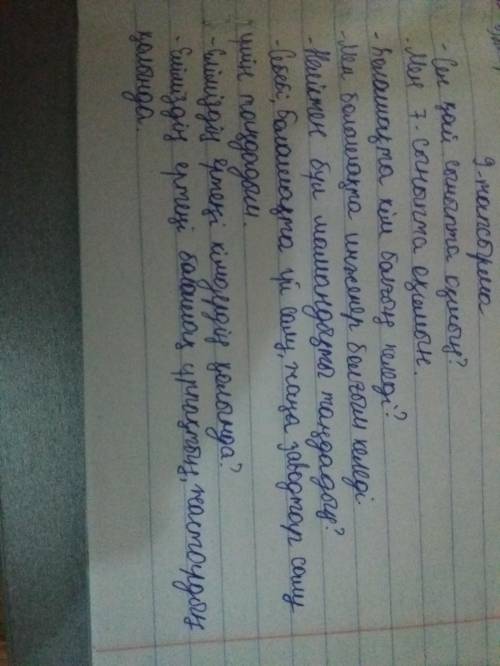 9-тапсырма
- Сен қай сыныпта оқисың?
- Мен 7-сыныпта оқимын.
- Болашақта кім болғың келеді?
- Мен болашақта инженер болғым келеді.
- Неліктен бұл мамандықты таңдадың?
- Себебі, болашақта үй салу, жаңа заводтар салу
үшін таңдадым.
- Еліміздің ертеңі кімдердің қолында?
- Еліміздің ертеңі болашақ ұрпақтың, жастардың
қолында.